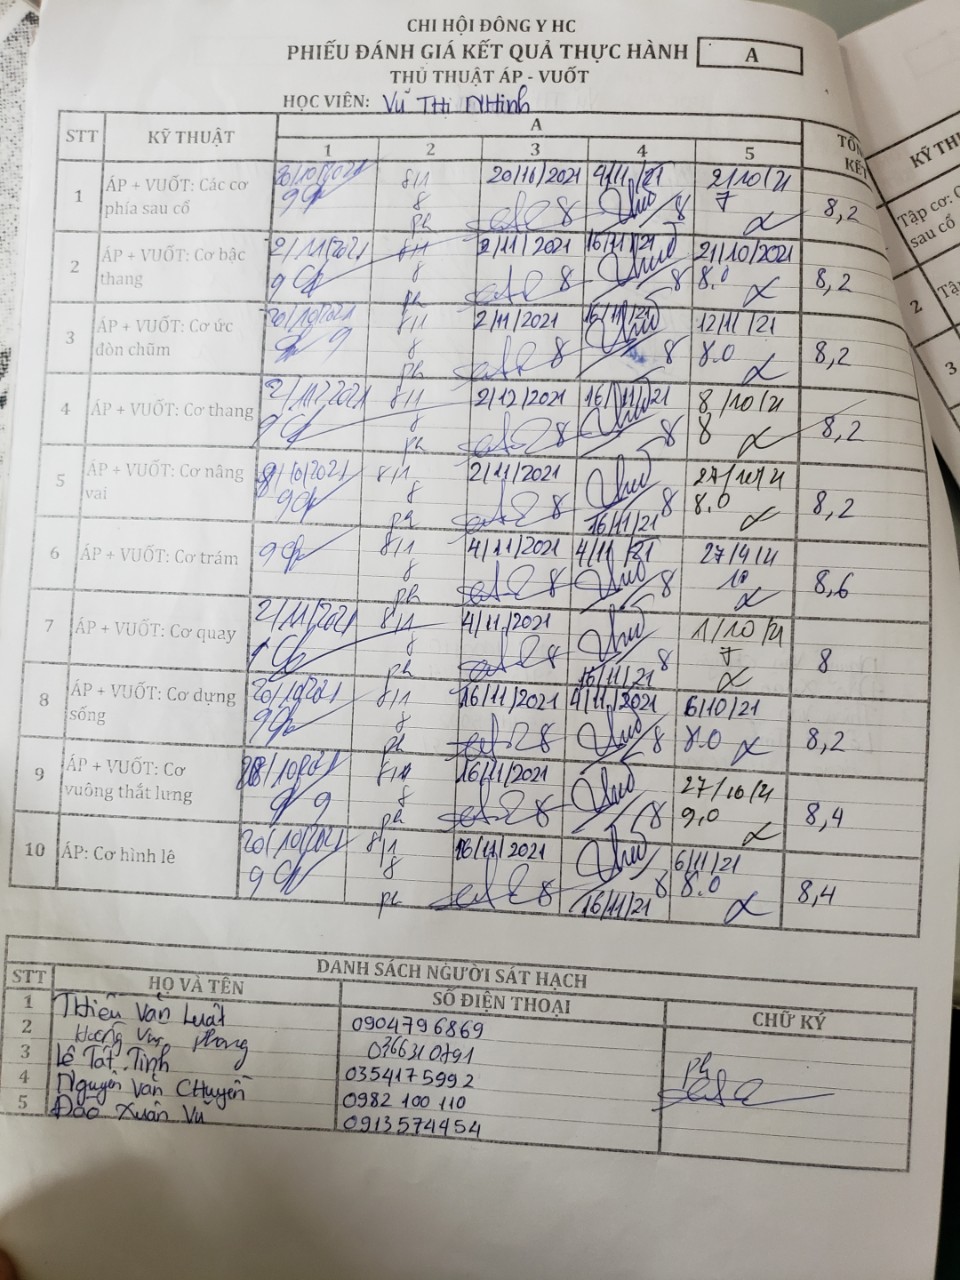 CHI HỘI ĐÔNG Y HC
PHIẾU ĐÁNH GIÁ KẾT QUẢ THỰC HÀNH
A
THỦ THUẬT ÁP - VUỐT
HỌC VIÊN: Vũ Thị Nhinh
STT KỸ THUẬT A TỔNG KẾT
1 2 3 4 5
1 ÁP + VUỐT: Các cơ phía sau cổ 20/10/2021 9 8/11 8 ph 20/11/2021 8 4/11/21 8 2/10/21 7 8,2
2 ÁP + VUỐT: Cơ bậc thang 2/11/2021 9 8/11 8 ph 2/11/2021 8 16/11/21 8 21/10/2021 8.0 8,2
3 ÁP + VUỐT: Cơ ức đòn chũm 20/10/2021 9 8/11 8 ph 2/11/2021 8 16/11/21 8 12/11/21 8.0 8,2
4 ÁP + VUỐT: Cơ thang 2/11/2021 9 8/11 8 ph 2/12/2021 8 16/11/2021 8 8/10/21 8 8,2
5 ÁP + VUỐT: Cơ nâng vai 9 8/11 8 ph 2/11/2021 8 8 16/11/21 27/10/21 8.0 8,2
6 ÁP + VUỐT: Cơ trám 9 8/11 8 ph 4/11/2021 8 4/11/21 8 27/9/21 10 8,6
7 ÁP + VUỐT: Cơ quay 2/11/2021 8/11 8 ph 4/11/2021 8 8 16/11/21 1/10/21 7 8
8 ÁP + VUỐT: Cơ dựng sống 20/10/2021 9 8/11 8 ph 16/11/2021 8 4/11/2021 8 6/10/21 8.0 8,2
9 ÁP + VUỐT: Cơ vuông thắt lưng 28/10/2021 9 8/11 8 ph 16/11/2021 8 8 27/10/21 9.0 8,4
10 ÁP: Cơ hình lê 20/10/2021 9 8/11 8 ph 16/11/2021 8 8 16/11/21 6/11/21 8.0 8,4
DANH SÁCH NGƯỜI SÁT HẠCH
STT HỌ VÀ TÊN SỐ ĐIỆN THOẠI CHỮ KÝ
1 Thiều Văn Luật 0904796869
2 Phong 0366310791 ph
3 Lê Tất Tịnh 0354175992
4 Nguyễn Văn Chuyền 0982 100 110
5 Đào Xuân Vũ 0913574454
KỸ TH
Tập cơ: C
sau cổ
2 Tậ
3